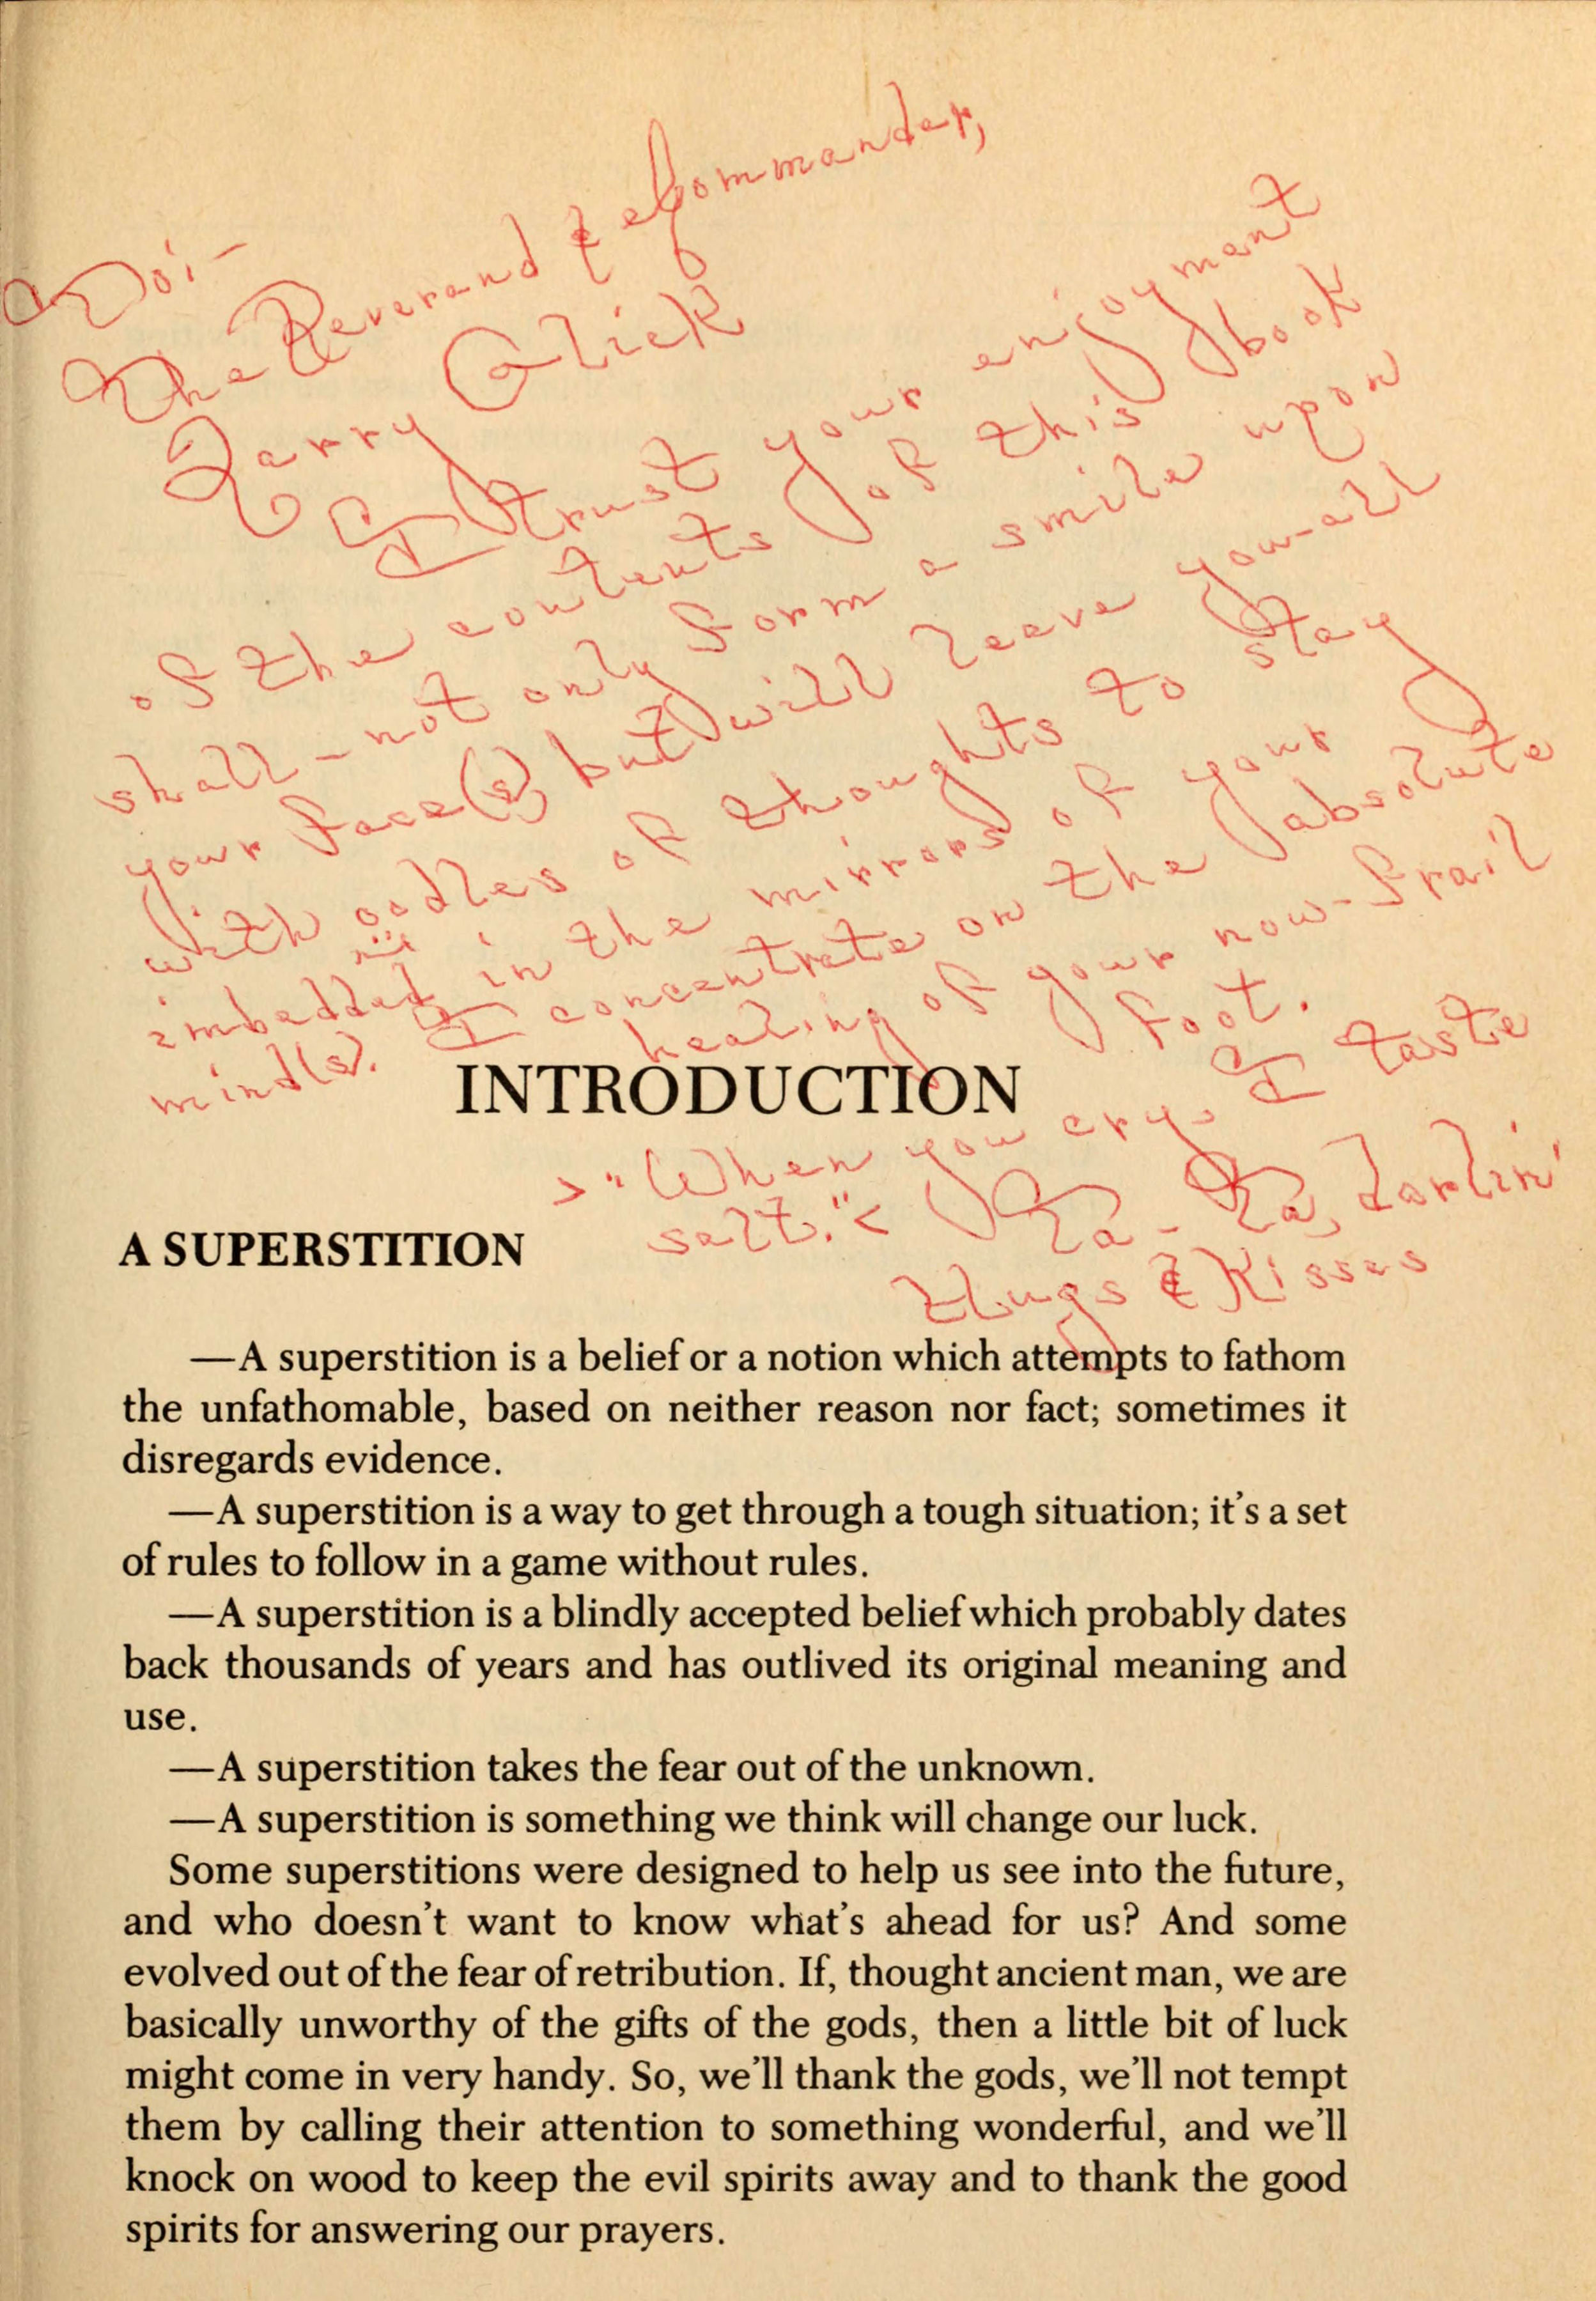 To:-
The Reverend & Commander,
Larry Glick
I trust your enjoyment
of the contents of this book
shall - not only form a smile upon
your face(s) but will leave you-all
with oodles of thoughts to stay
imbedded in the mirrors of your
mind(s). I concentrate on the absolute
healing of your now-frail
foot.
>"When you cry, I taste
salt."<
Ta-Ta, Darlin'
Hugs & Kisses
INTRODUCTION
A SUPERSTITION
—A superstition is a belief or a notion which attempts to fathom
the unfathomable, based on neither reason nor fact; sometimes it
disregards evidence.
—A superstition is a way to get through a tough situation; it's a set
of rules to follow in a game without rules.
—A superstition is a blindly accepted belief which probably dates
back thousands of years and has outlived its original meaning and
use.
—A superstition takes the fear out of the unknown.
—A superstition is something we think will change our luck.
Some superstitions were designed to help us see into the future,
and who doesn't want to know what's ahead for us? And some
evolved out of the fear of retribution. If, thought ancient man, we are
basically unworthy of the gifts of the gods, then a little bit of luck
might come in very handy. So, we'll thank the gods, we'll not tempt
them by calling their attention to something wonderful, and we'll
knock on wood to keep the evil spirits away and to thank the good
spirits for answering our prayers.